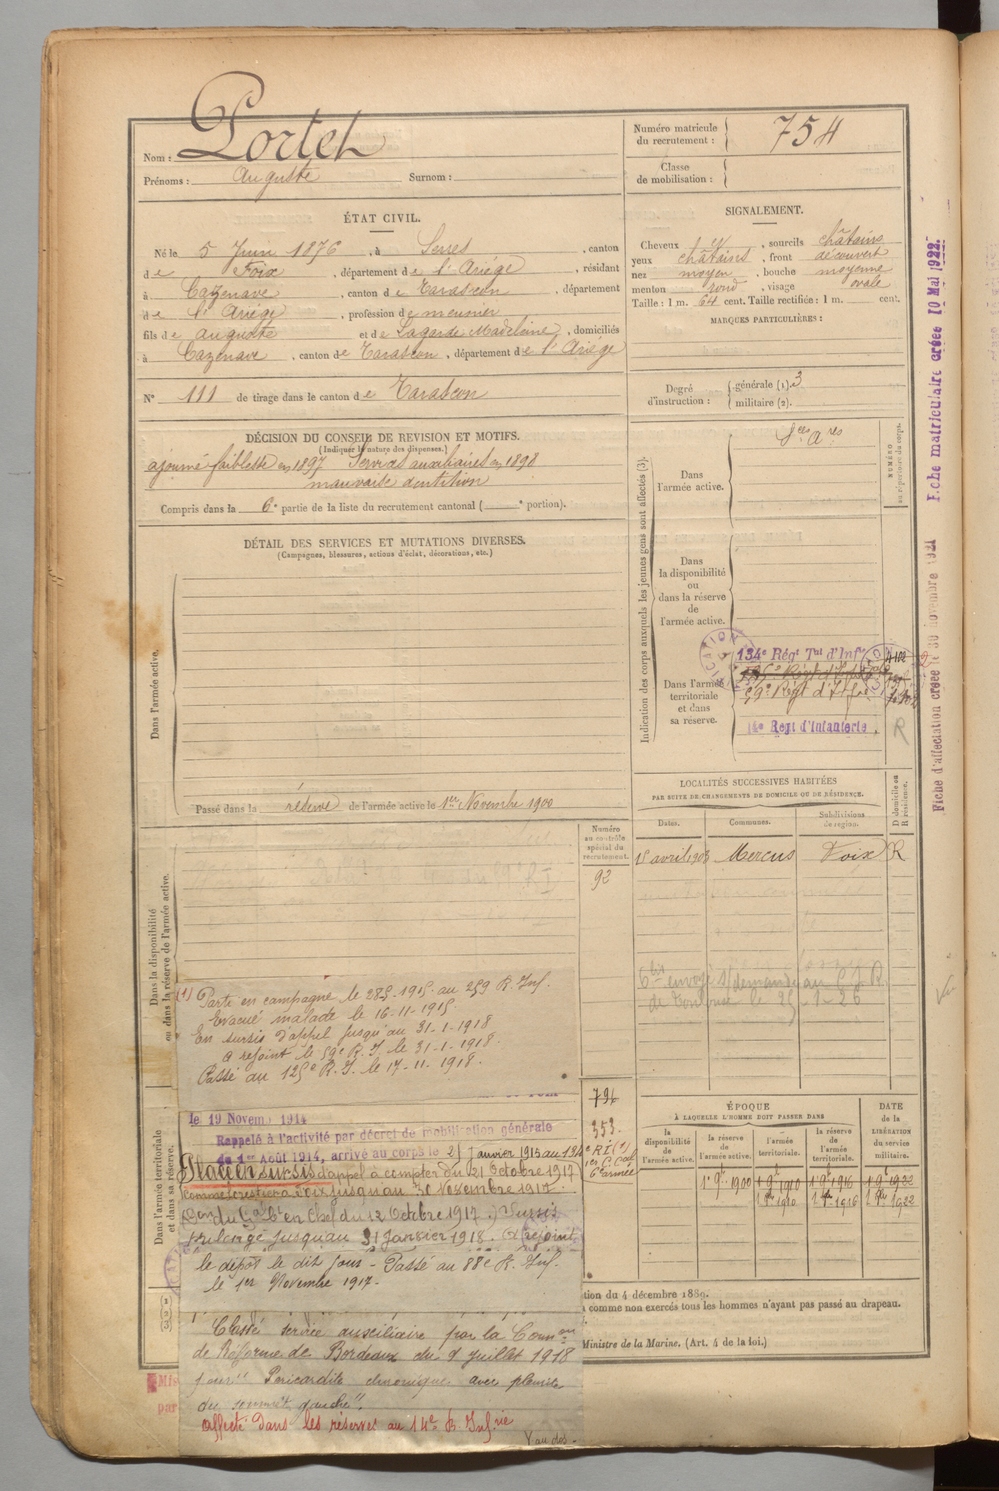 Nom : Portet
Prénoms : Auguste Surnom :
Numéro matricule du recrutement : 754
Classe de mobilisation :
ÉTAT CIVIL.
Né le 5 Juin 1876, à Serres, canton
de Foix, département de l'Ariége, résidant
à Cazenave, canton de Tarascon, département
de l'Ariége, profession de meunier
fils de Auguste et de Lagarde Madeleine, domiciliés
à Cazenave, canton de Tarascon, département de l'Ariége
N° 111 de tirage dans le canton de Tarascon
SIGNALEMENT.
Cheveux et, sourcils châtains
yeux châtains, front découvert
nez moyen, bouche moyenne
menton rond, visage ovale
Taille : 1 m. 64 cent. Taille rectifiée : 1 m. cent.
MARQUES PARTICULIÈRES :
Degré d'instruction : générale (1). 3
militaire (2).
DÉCISION DU CONSEIL DE REVISION ET MOTIFS.
(Indiquer la nature des dispenses.)
ajourné faiblesse en 1897 Services auxiliaires en 1898
mauvaise dentition
Compris dans la 6e partie de la liste du recrutement cantonal ( e portion).
DÉTAIL DES SERVICES ET MUTATIONS DIVERSES.
(Campagnes, blessures, actions d'éclat, décorations, etc.)
Dans l'armée active.
Passé dans la réserve de l'armée active le 1er Novembre 1900
Indication des corps auxquels les jeunes gens sont affectés (3).
NUMÉRO au répertoire du corps.
Dans l'armée active.
Dans la disponibilité ou dans la réserve de l'armée active.
Dans l'armée territoriale et dans sa réserve.
134e Régt Tal d'Infie
59e Régt d'Infie
14e Régt d'Infanterie.
R
Fiche d'affectation créée le 30 novembre 1921
Fiche matriculaire créée 10 Mai 1922
LOCALITÉS SUCCESSIVES HABITÉES
PAR SUITE DE CHANGEMENTS DE DOMICILE OU DE RÉSIDENCE.
Dates. Communes. Subdivisions de région. D domicile ou R résidence.
15 avril 1903 Mercus Foix R
de Toulouse le 25-1-26
Numéro au contrôle spécial du recrutement.
92
Dans la disponibilité ou dans la réserve de l'armée active.
(1) Parti en campagne le 28-5-1915 au 259 R. Inf.
Evacué malade le 16-11-1915.
En sursis d'appel jusqu'au 31-1-1918
a rejoint le 59e R. I. le 31-1-1918.
Passé au 125e R. I. le 17-11-1918.
Dans l'armée territoriale et dans sa réserve.
le 19 Novem. 1914
Rappelé à l'activité par décret de mobilisation générale
du 1er Août 1914, arrivé au corps le 21 Janvier 1915
Placé en sursis d'appel à compter du 21 Octobre 1917
jusqu'au 30 Novembre 1917.
en Chef du 12 Octobre 1917.) Sursis
prolongé jusqu'au 31 Janvier 1918. A rejoint
le dépôt le dit jour - Passé au 88e R. Inf.
le 1er Novembre 1917.
794
353
ÉPOQUE
À LAQUELLE L'HOMME DOIT PASSER DANS
la disponibilité de l'armée active. la réserve de l'armée active. l'armée territoriale. la réserve de l'armée territoriale.
DATE de la LIBÉRATION du service militaire.
1er 9bre 1900 1er 9bre 1910 1er 9bre 1916 1er 9bre 1922
tion du 4 décembre 1889.
comme non exercés tous les hommes n'ayant pas passé au drapeau.
Ministre de la Marine. (Art. 4 de la loi.)
Classé service auxiliaire par la Common
de Réforme de Bordeaux du 9 Juillet 1918
pour "Pericardite chronique avec pleurite
du sommet gauche".
Affecté dans les réserves au 14e R. Infrie
V. au dos.